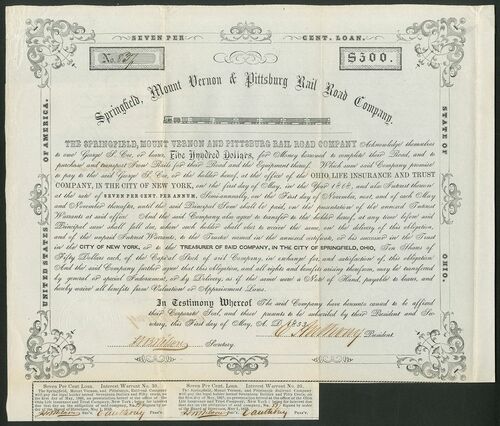 SEVEN PER CENT. LOAN.
No. 137
$500.
Springfield, Mount Vernon & Pittsburg Rail Road Company.
UNITED STATES OF AMERICA.
STATE OF OHIO.
THE SPRINGFIELD, MOUNT VERNON AND PITTSBURG RAIL ROAD COMPANY Acknowledge themselves
to owe George S. Coe, or bearer, Five Hundred Dollars, for Money borrowed to complete their Road, and to
purchase and transport Iron Rails for their Road and the Equipment thereof. Which sum said Company promise
to pay to the said George S. Coe, or the holder hereof, at the office of the OHIO LIFE INSURANCE AND TRUST
COMPANY, IN THE CITY OF NEW YORK, on the first day of May, in the Year 1868, and also Interest thereon
at the rate of SEVEN PER CENT. PER ANNUM, Semi-annually, on the First days of November, next, and of each May
and November thereafter, until the said Principal Sum shall be paid, on the presentation of the annexed Interest
Warrants at said office. And the said Company also agree to transfer to the holder hereof, at any time before said
Principal sum shall fall due, when such holder shall elect to receive the same, on the delivery of this obligation,
and of the unpaid Interest Warrants, to the Trustee named in the annexed certificate, or his successor in the Trust
in the CITY OF NEW YORK, or to the TREASURER OF SAID COMPANY, IN THE CITY OF SPRINGFIELD, OHIO, Ten Shares of
Fifty Dollars each, of the Capital Stock of said Company, in exchange for, and satisfaction of, this obligation.
And the said Company further agree that this obligation, and all rights and benefits arising therefrom, may be transferred
by general or special Indorsement, or by Delivery, as if the same were a Note of Hand, payable to bearer, and
hereby waive all benefits from Valuation or Appraisement Laws.
In Testimony Whereof The said Company have hereunto caused to be affixed
their Corporate Seal, and these presents to be subscribed by their President and Sec-
retary, this First day of May, A. D. 1853.
President.
Secretary.
Seven Per Cent. Loan. Interest Warrant No. 30.
The Springfield, Mount Vernon, and Pittsburgh Railroad Company
Seven Per Cent. Loan. Interest Warrant No. 29.
The Springfield, Mount Vernon, and Pittsburgh Railroad Company